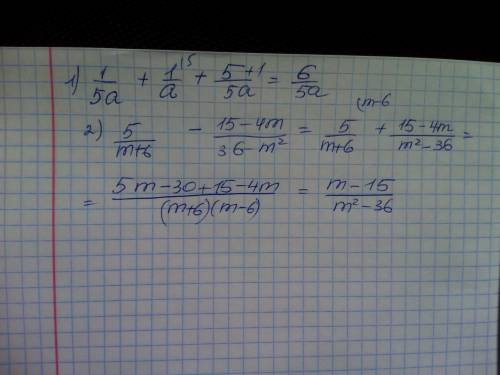 1) 1/5a + 1/a ⁽⁵ + 5+1/5a = 6/5a
2) 5/m+6 − 15−4m/36−m² = 5/m+6 ⁽ᵐ⁻⁶ + 15−4m/m²−36 =
= 5m−30+15−4m/(m+6)(m−6) = m−15/m²−36